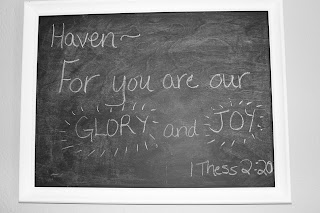 Haven~
For you are our
GLORY and JOY
1 Thess 2:20